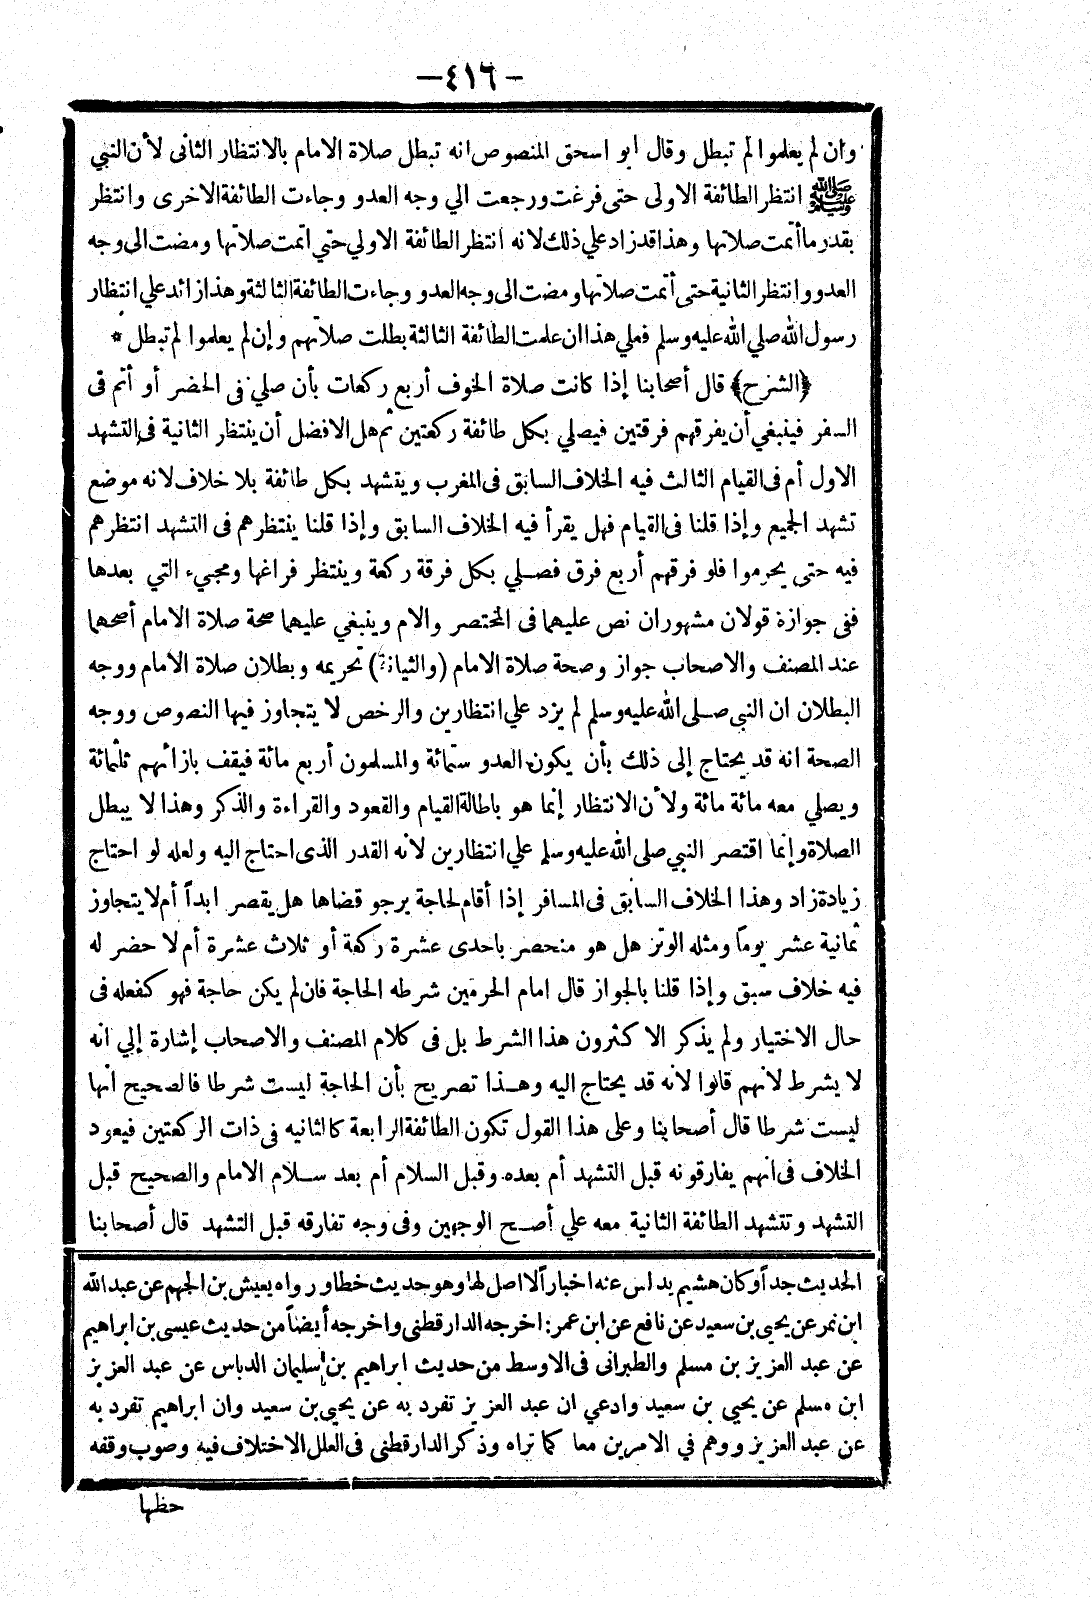 -٤١٦-
وان لم يعلموا لم تبطل وقال أبو اسحق المنصوص انه تبطل صلاة الامام بالانتظار الثانى لأن النبي
ﷺ انتظر الطائفة الاولى حتى فرغت ورجعت الي وجه العدو وجاءت الطائفة الاخرى وانتظر
بقدر ما أتمت صلاتها وهذا قد زاد علي ذلك لانه انتظر الطائفة الاولي حتي اتمت صلاتها ومضت الى وجه
العدو وانتظر الثانية حتى أتمت صلاتها ومضت الى وجه العدو وجاءت الطائفة الثالثة وهذا زائد علي انتظار
رسول الله صلي الله عليه وسلم فعلي هذا ان علمت الطائفة الثالثة بطلت صلاتهم وإن لم يعلموا لم تبطل *
﴿الشرح﴾ قال أصحابنا إذا كانت صلاة الخوف أربع ركعات بأن صلي فى الحضر أو أتم فى
السفر فينبغي أن يفرقهم فرقتين فيصلي بكل طائفة ركعتين ثم هل الافضل أن ينتظر الثانية فى التشهد
الاول أم فى القيام الثالث فيه الخلاف السابق فى المغرب ويتشهد بكل طائفة بلا خلاف لانه موضع
تشهد الجميع وإذا قلنا فى القيام فهل يقرأ فيه الخلاف السابق وإذا قلنا ينتظرهم فى التشهد انتظرهم
فيه حتى يحرموا فلو فرقهم أربع فرق فصلي بكل فرقة ركعة وينتظر فراغها ومجيء التي بعدها
ففى جوازة قولان مشهوران نص عليهما فى المختصر والام وينبغي عليهما صحة صلاة الامام أصحهما
عند المصنف والاصحاب جواز وصحة صلاة الامام (والثيانى) تحريمه وبطلان صلاة الامام ووجه
البطلان ان النبي صلى الله عليه وسلم لم يزد علي انتظارين والرخص لا يتجاوز فيها النصوص ووجه
الصحة انه قد يحتاج إلى ذلك بأن يكون العدو ستمائة والمسلمون أربع مائة فيقف بازائهم ثلثمائة
ويصلي معه مائة مائة ولأن الانتظار إنما هو باطالة القيام والقعود والقراءة والذكر وهذا لا يبطل
الصلاة وإنما اقتصر النبي صلى الله عليه وسلم علي انتظارين لأنه القدر الذى احتاج اليه ولعله لو احتاج
زيادة زاد وهذا الخلاف السابق فى المسافر إذا أقام لحاجة يرجو قضاها هل يقصر ابداً أم لا يتجاوز
ثمانية عشر يوماً ومثله الوتر هل هو منحصر باحدى عشرة ركعة أو ثلاث عشرة أم لا حضر له
فيه خلاف سبق وإذا قلنا بالجواز قال امام الحرمين شرطه الحاجة فان لم يكن حاجة فهو كفعله فى
حال الاختيار ولم يذكر الاكثرون هذا الشرط بل فى كلام المصنف والاصحاب إشارة إلي انه
لا يشرط لانهم قالوا لانه قد يحتاج اليه وهذا تصريح بأن الحاجة ليست شرطا فالصحيح انها
ليست شرطا قال أصحابنا وعلى هذا القول تكون الطائفة الرابعة كالثانيه فى ذات الركعتين فيعود
الخلاف فى انهم يفارقونه قبل التشهد أم بعده وقبل السلام أم بعد سلام الامام والصحيح قبل
التشهد وتتشهد الطائفة الثانية معه علي أصح الوجهين وفى وجه تفارقه قبل التشهد قال أصحابنا
الحديث جداً وكان هشيم يدلس عنه اخباراً لا اصل لها وهو حديث خطا ورواه يعيش بن الجهم عن عبد الله
ابن نمر عن يحيى بن سعيد عن نافع عن ابن عمر: اخرجه الدارقطنى واخرجه أيضاً من حديث عيسى بن ابراهيم
عن عبد العزيز بن مسلم والطبرانى فى الاوسط من حديث ابراهيم بن سليمان الدباس عن عبد العزيز
ابن مسلم عن يحيى بن سعيد وادعي ان عبد العزيز تفرد به عن يحيى بن سعيد وان ابراهيم تفرد به
عن عبد العزيز ووهم في الامرين معا كما تراه وذكر الدارقطنى فى العلل الاختلاف فيه وصوب وقفه
حظها